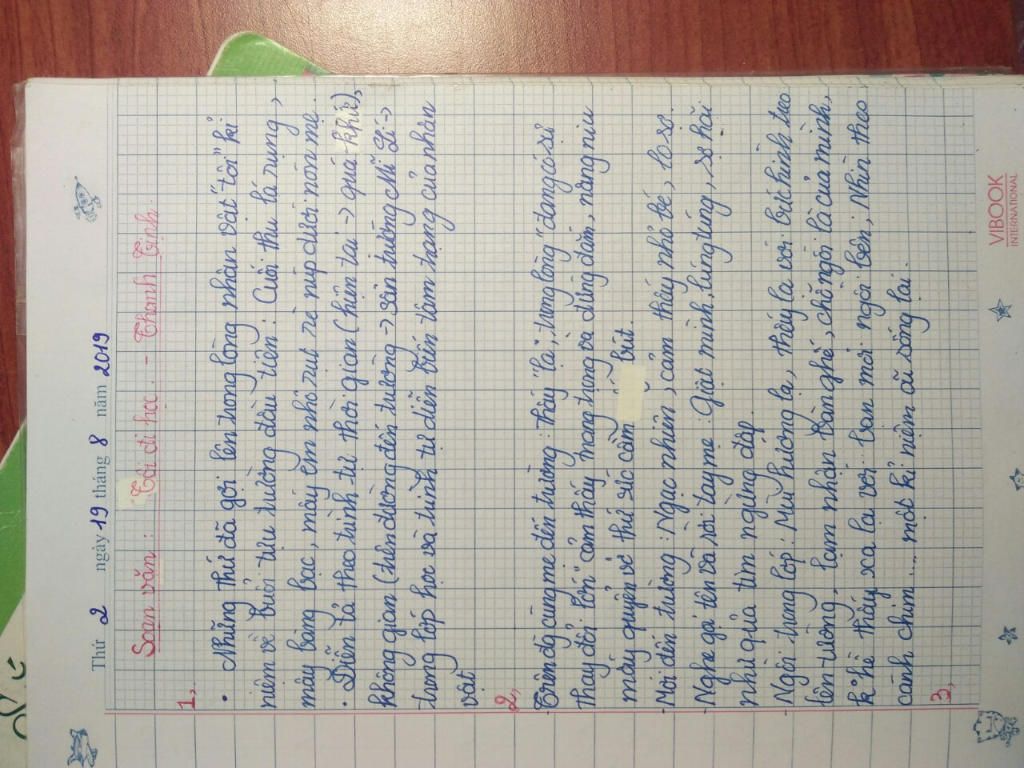 Thứ 2 ngày 19 tháng 8 năm 2019
Soạn văn: Tôi đi học. - Thanh Tịnh.
1,
• Những thứ đã gợi lên trong lòng nhân vật "tôi" kỉ
niệm về buổi tựu trường đầu tiên: Cuối thu lá rụng,
mây bàng bạc, mấy em nhỏ rụt rè núp dưới nón mẹ.
• Diễn tả theo trình tự thời gian (hiện tại → quá khứ),
không gian (trên đường đến trường → sân trường Mĩ Lí →
trong lớp học và trình tự diễn biến tâm trạng của nhân
vật
2,
- Trên đg cùng mẹ đến trường: thấy "lạ", trong lòng "đang có sự
thay đổi lớn" cảm thấy trang trọng và đứng đắn, nâng niu
mấy quyển vở thử sức cầm bút.
- Mới đến trường: Ngạc nhiên, cảm thấy nhỏ bé, lo sợ.
- Nghe gọi tên và rời tay mẹ: Giật mình, lúng túng, sợ hãi
như quả tim ngừng đập.
- Ngồi trong lớp: Mùi hương lạ, thấy lạ với bức hình treo
trên tường, lạm nhận bàn ghế, chỗ ngồi là của mình,
k hề thấy xa lạ với bạn mới ngồi bên; Nhìn theo
cánh chim..... một kỉ niệm cũ sống lại.
3,
VIBOOK
INTERNATIONAL